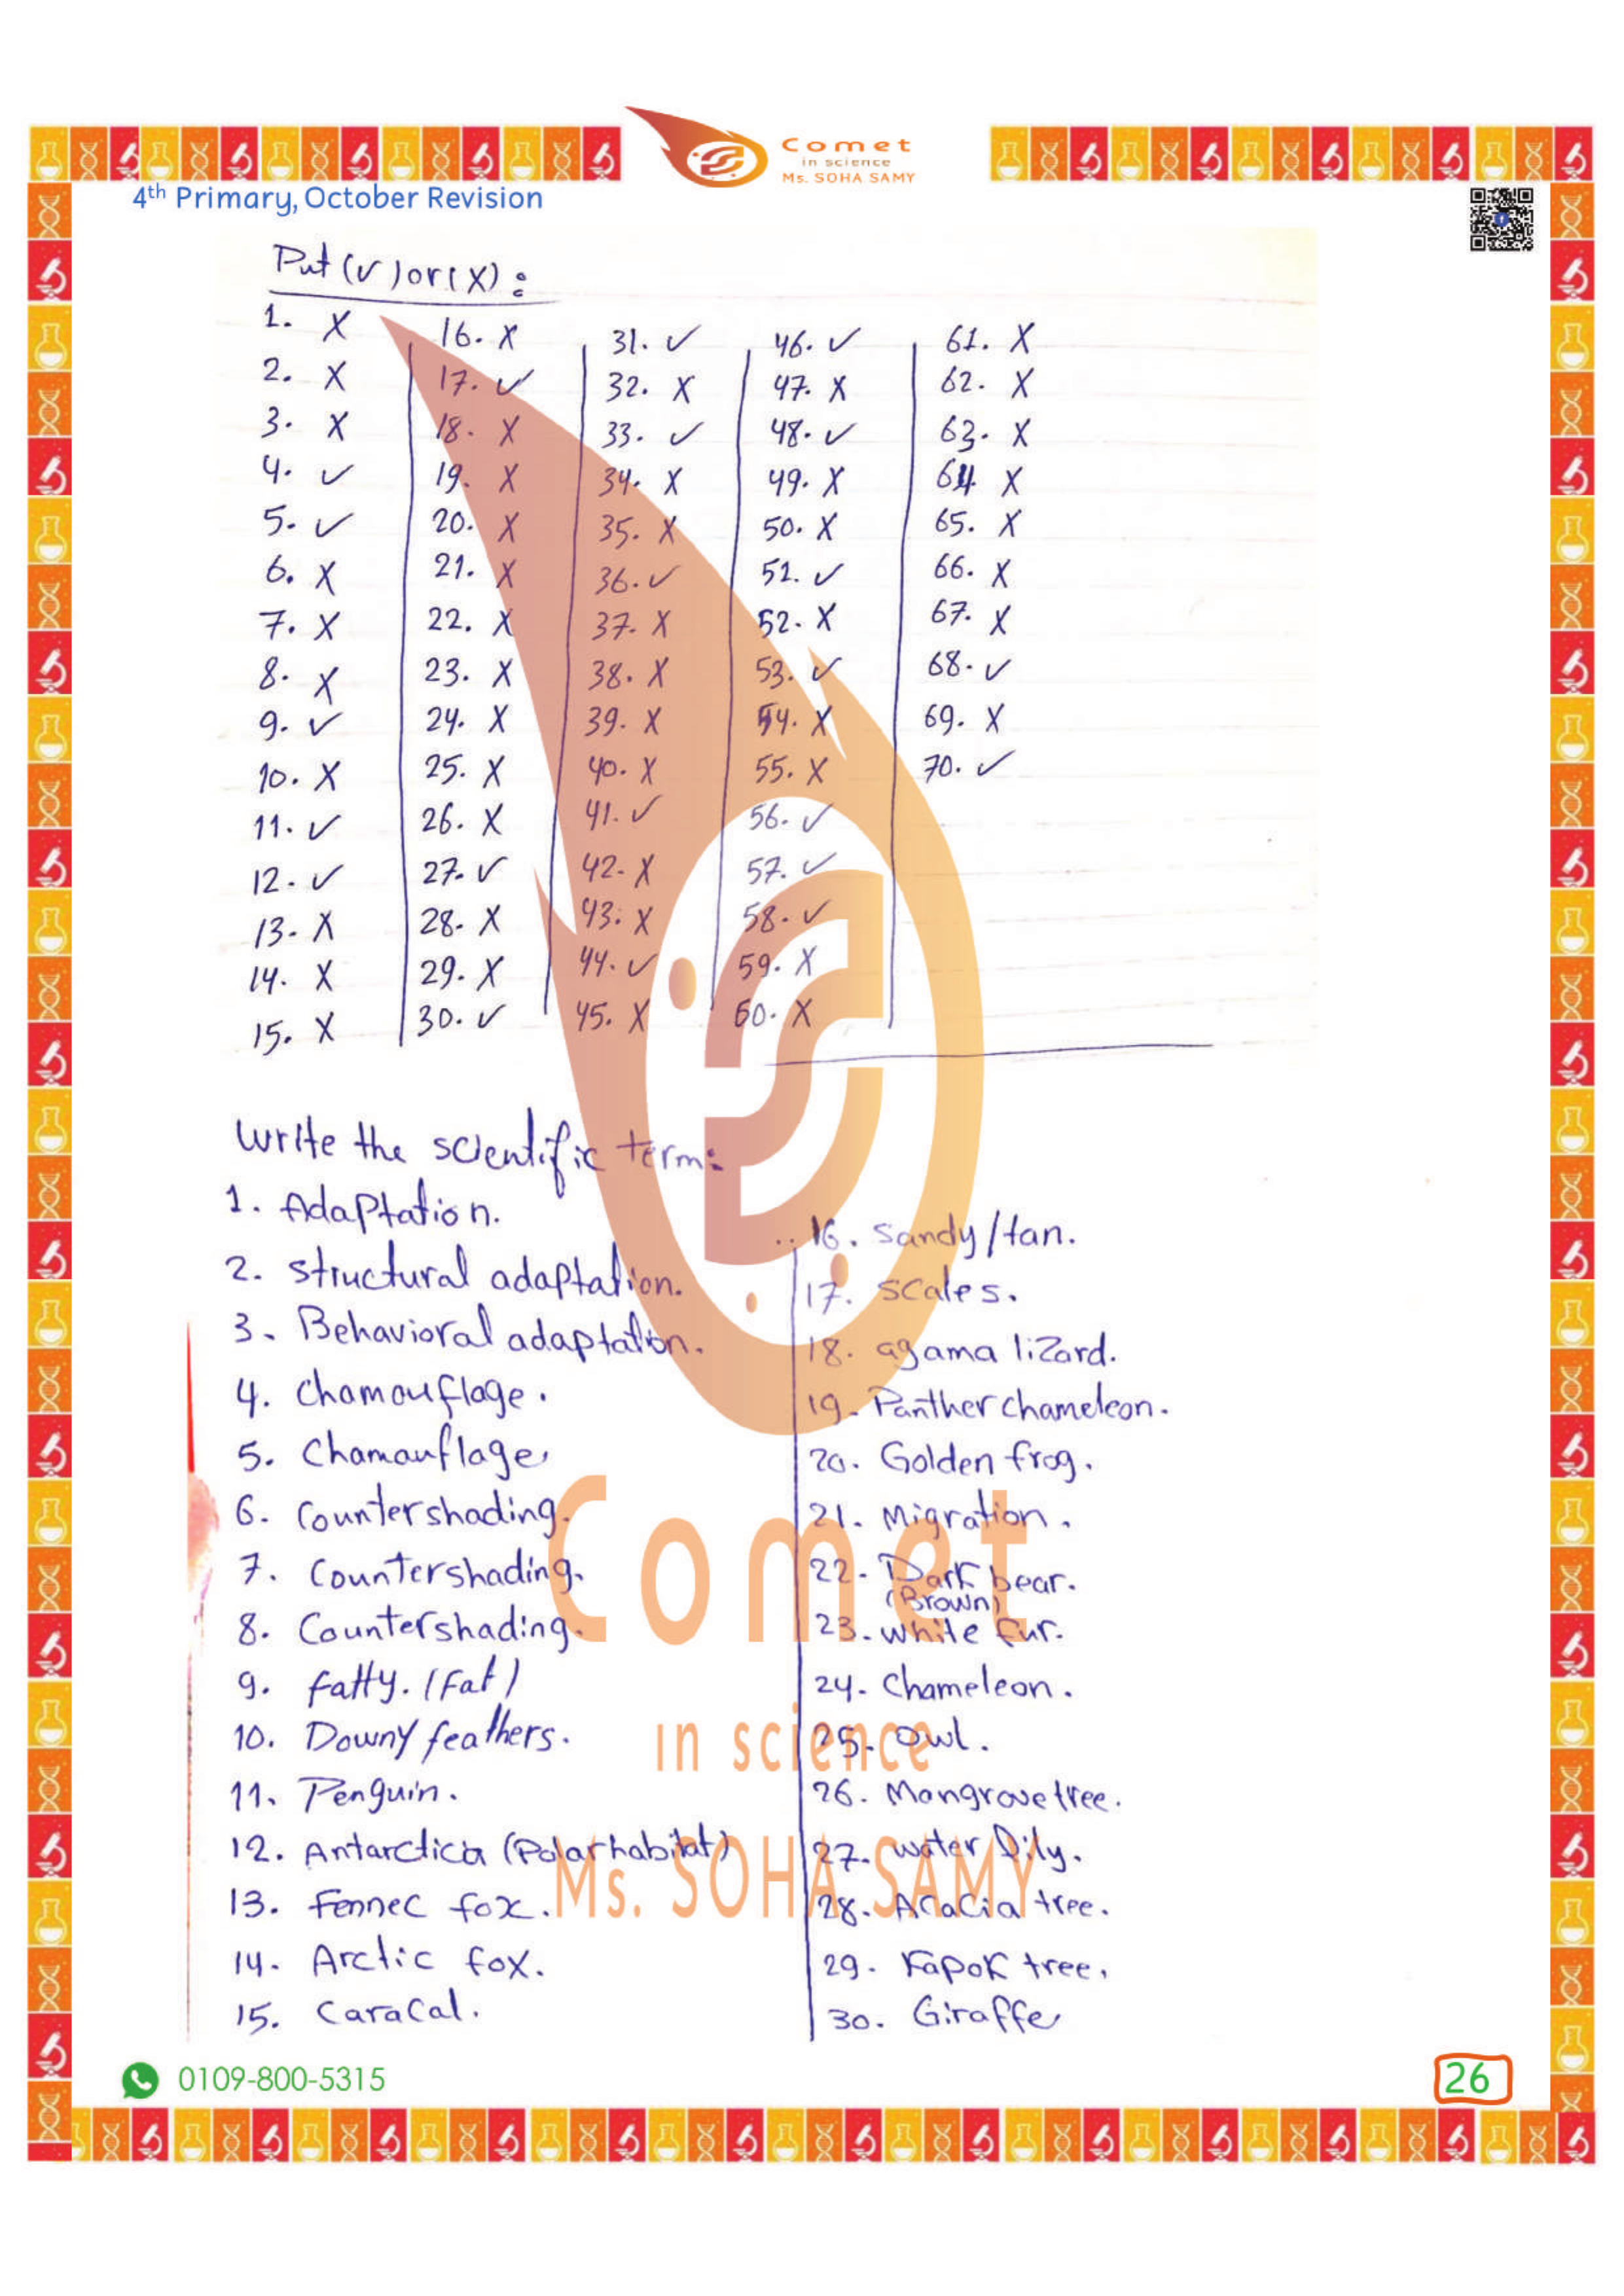 Comet
in science
Ms. SOHA SAMY
4th Primary, October Revision
Put (✓) or (X) :
1. X
2. X
3. X
4. ✓
5. ✓
6. X
7. X
8. X
9. ✓
10. X
11. ✓
12. ✓
13. X
14. X
15. X
16. X
17. ✓
18. X
19. X
20. X
21. X
22. X
23. X
24. X
25. X
26. X
27. ✓
28. X
29. X
30. ✓
31. ✓
32. X
33. ✓
34. X
35. X
36. ✓
37. X
38. X
39. X
40. X
41. ✓
42. X
43. X
44. ✓
45. X
46. ✓
47. X
48. ✓
49. X
50. X
51. ✓
52. X
53. ✓
54. X
55. X
56. ✓
57. ✓
58. ✓
59. X
60. X
61. X
62. X
63. X
64. X
65. X
66. X
67. X
68. ✓
69. X
70. ✓
Write the scientific term:
1. Adaptation.
2. structural adaptation.
3. Behavioral adaptation.
4. Chamouflage.
5. Chamouflage.
6. Countershading.
7. Countershading.
8. Countershading.
9. fatty. (Fat)
10. Downy feathers.
11. Penguin.
12. Antarctica (Polar habitat)
13. Fennec fox.
14. Arctic fox.
15. Caracal.
16. Sandy/tan.
17. Scales.
18. agama lizard.
19. Panther chameleon.
20. Golden frog.
21. Migration.
22. Dark bear.
(Brown)
23. white fur.
24. Chameleon.
25. Owl.
26. Mangrove tree.
27. water lily.
28. Acacia tree.
29. Kapok tree.
30. Giraffe
Comet
in science
Ms. SOHA SAMY
0109-800-5315
26